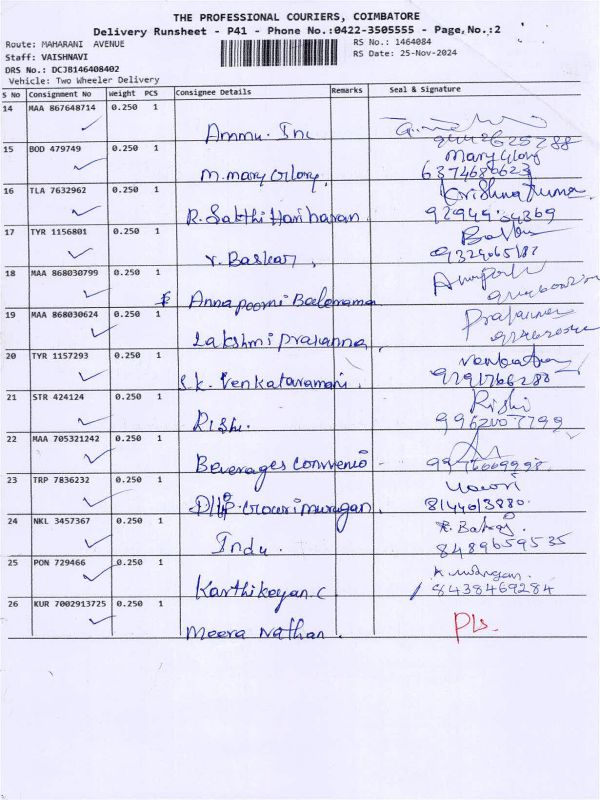 THE PROFESSIONAL COURIERS, COIMBATORE
Delivery Runsheet - P41 - Phone No.:0422-3505555 - Page,No.:2
Route: MAHARANI AVENUE RS No.: 1464084
Staff: VAISHNAVI RS Date: 25-Nov-2024
DRS No.: DCJB146408402
Vehicle: Two Wheeler Delivery
S No Consignment No Weight PCS Consignee Details Remarks Seal & Signature
14 MAA 867648714 0.250 1
Ammu. Inc
15 BOD 479749 0.250 1 Mary Glory
M. Mary Glory. 6374680623
16 TLA 7632962 0.250 1
R. Sakthi Hariharan
17 TYR 1156801 0.250 1
V. Baskar,
18 MAA 868030799 0.250 1
Annapoorni
19 MAA 868030624 0.250 1
Lakshmi Prasanna,
20 TYR 1157293 0.250 1
S.K. Venkataramani. 9791766288
21 STR 424124 0.250 1 Rishi
Rishi. 9962007799
22 MAA 705321242 0.250 1
Beverages
23 TRP 7836232 0.250 1
Gowrimurugan. 8144013880.
24 NKL 3457367 0.250 1
Indu. 8489659535
25 PON 729466 0.250 1
Karthikeyan.C 8438469284
26 KUR 7002913725 0.250 1
Meera Nathan.